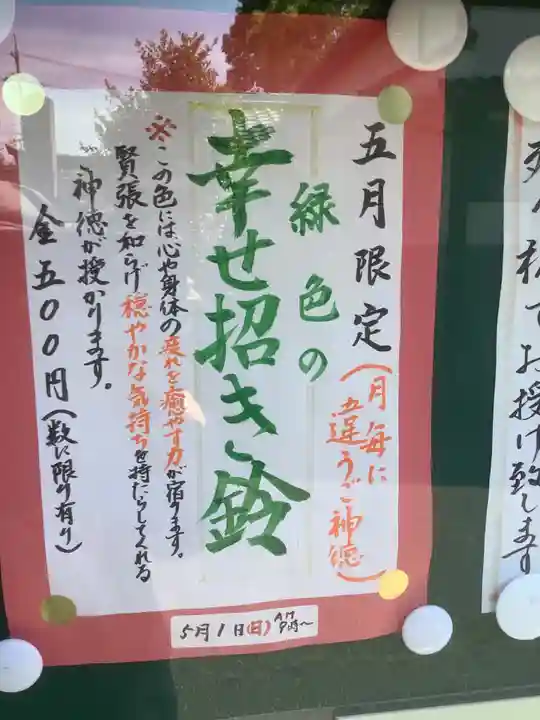 五月限定（月毎に違うご神徳）
緑色の
幸せ招き鈴
※この色には心や身体の疲れを癒やす力が宿ります。
賢張を和らげ穏やかな気持ちを持たらしてくれる
神徳が授かります。
金五〇〇円（数に限り有り）
5月1日(日)AM9時〜
お授け致します